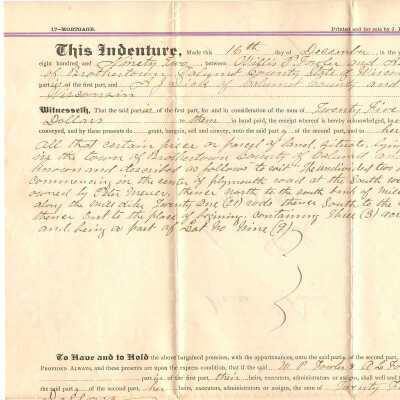 17—MORTGAGE. Printed and for sale by J.
This Indenture, Made this 16th day of December in the y
eight hundred and Ninety Two, between Willis P. Fowler and
of Brothertown, Calumet County State of Wiscon
part of the first part, and of Calumet County and
Wisconsin
Witnesseth, That the said part of the first part, for and in consideration of the sum of Twenty Five
Dollars to them in hand paid, the receipt whereof is hereby acknowledged, ha
conveyed, and by these presents do grant, bargain, sell and convey, unto the said part y of the second part, and to her
all that certain piece or parcel of land, situate, lying
in the town of Brothertown County of Calumet an
known and described as follows to wit: The undivided two
commencing in the center of plymouth road at the South we
owned by thence North to the south bank of mill
along the mill dike Twenty One (21) rods thence South to the
thence East to the place of begining, containing three (3) acr
and being a part of Lot No Nine (9)
To Have and to Hold the above bargained premises, with the appurtenances, unto the said part of the second part,
PROVIDED ALWAYS, and these presents are upon the express condition, that if the said W. P. Fowler & A L Fo
part ies of the first part, their heirs, executors, administrators or assigns, shall well and t
the said part y of the second part, her heirs, executors, administrators or assigns, the sum of Twenty Fi
Dollars